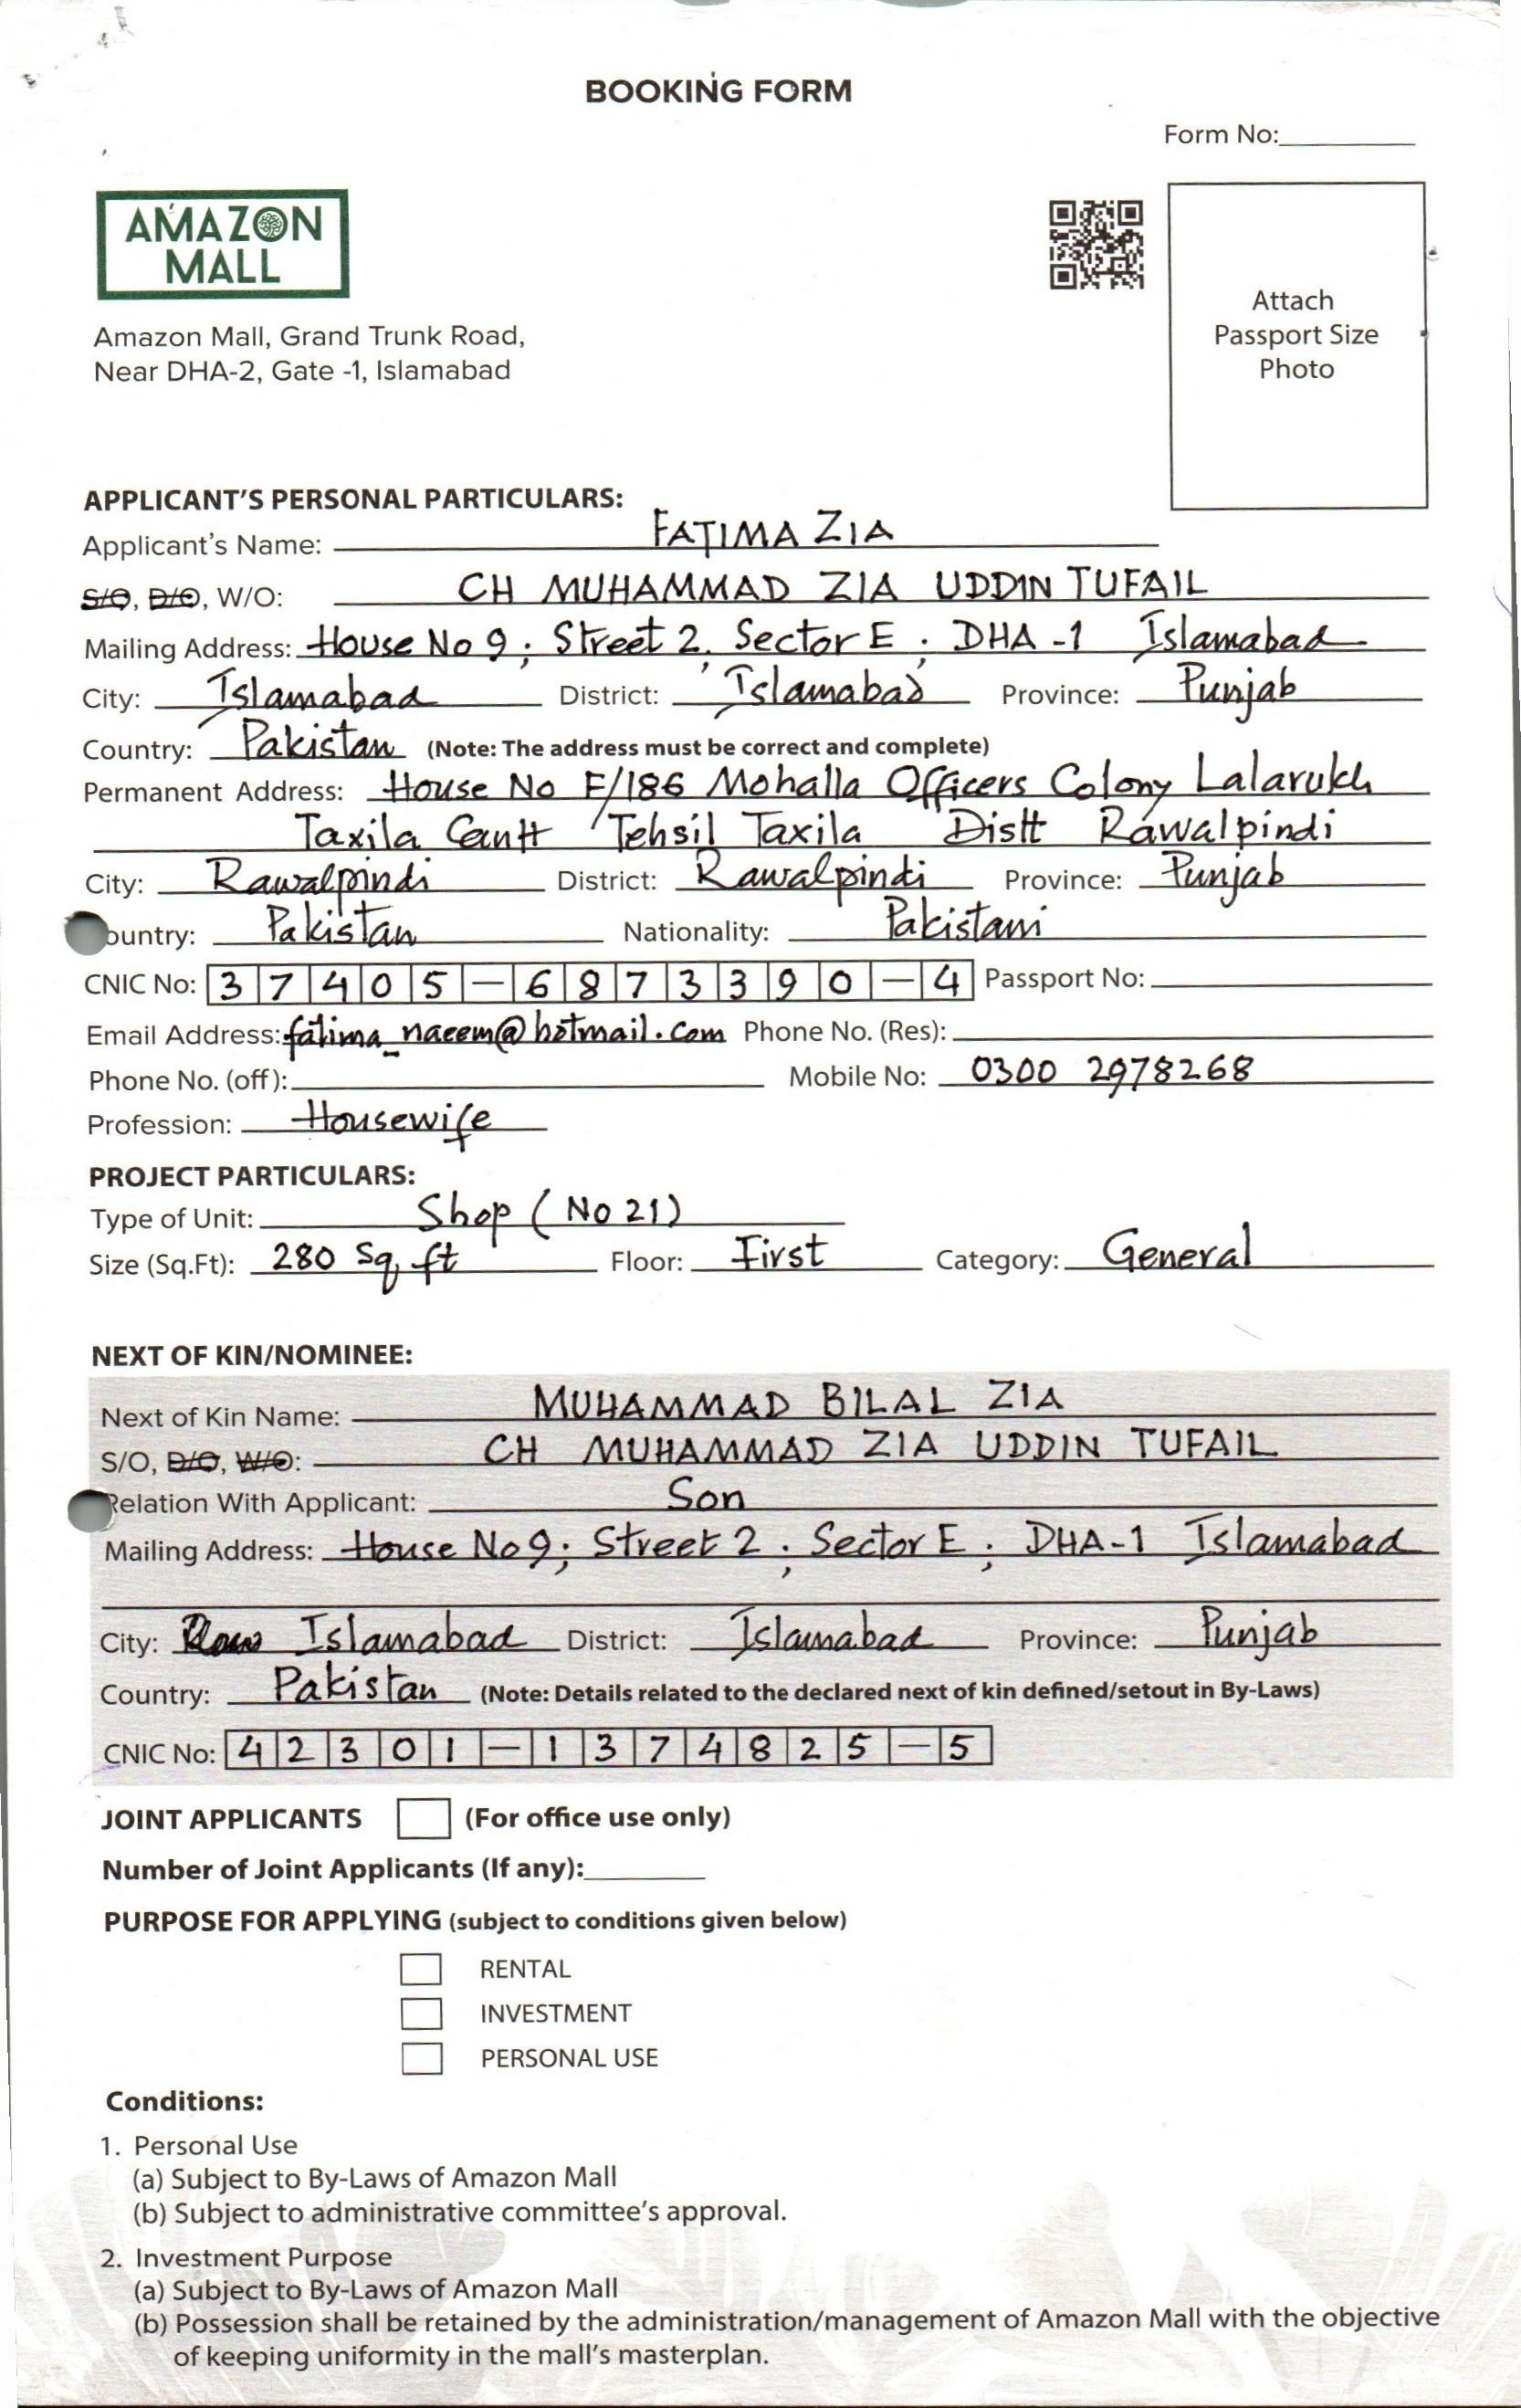 BOOKING FORM
Form No:
AMAZON
MALL
Attach
Passport Size
Photo
Amazon Mall, Grand Trunk Road,
Near DHA-2, Gate -1, Islamabad
APPLICANT'S PERSONAL PARTICULARS:
Applicant's Name: FATIMA ZIA
S/O, D/O, W/O: CH MUHAMMAD ZIA UDDIN TUFAIL
Mailing Address: House No 9; Street 2, Sector E; DHA-1 Islamabad
City: Islamabad District: Islamabad Province: Punjab
Country: Pakistan (Note: The address must be correct and complete)
Permanent Address: House No F/186 Mohalla Officers Colony Lalarukh
Taxila Cantt Tehsil Taxila Distt Rawalpindi
City: Rawalpindi District: Rawalpindi Province: Punjab
ountry: Pakistan Nationality: Pakistani
CNIC No: 37405-6873390-4 Passport No:
Email Address: fatima_naeem@hotmail.com Phone No. (Res):
Phone No. (off): Mobile No: 0300 2978268
Profession: Housewife
PROJECT PARTICULARS:
Type of Unit: Shop (No 21)
Size (Sq.Ft): 280 Sq ft Floor: First Category: General
NEXT OF KIN/NOMINEE:
Next of Kin Name: MUHAMMAD BILAL ZIA
S/O, D/O, W/O: CH MUHAMMAD ZIA UDDIN TUFAIL
Relation With Applicant: Son
Mailing Address: House No 9; Street 2; Sector E; DHA-1 Islamabad
City: Islamabad District: Islamabad Province: Punjab
Country: Pakistan (Note: Details related to the declared next of kin defined/setout in By-Laws)
CNIC No: 42301-1374825-5
JOINT APPLICANTS (For office use only)
Number of Joint Applicants (If any):
PURPOSE FOR APPLYING (subject to conditions given below)
RENTAL
INVESTMENT
PERSONAL USE
Conditions:
1. Personal Use
(a) Subject to By-Laws of Amazon Mall
(b) Subject to administrative committee's approval.
2. Investment Purpose
(a) Subject to By-Laws of Amazon Mall
(b) Possession shall be retained by the administration/management of Amazon Mall with the objective
of keeping uniformity in the mall's masterplan.